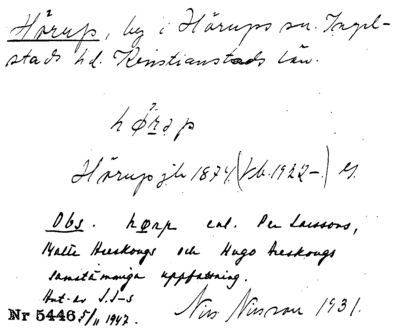 Hörup, by i Hörups sn. Ingel-
stads hd. Kristianstads län.
hø̀rəp
Hörup jh 1874 (sb. 1922–)
Obs. hørp enl. Per Larssons,
Malte Hreskougs och Hugo Hreskougs
samstämmiga uppfattning.
Ant. av S.I-s
Nr 5446 5/11 1947.
Nils Nilsson 1931.